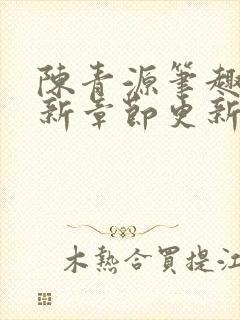 陳青源筆趣
新章節更新
木熱合買提江